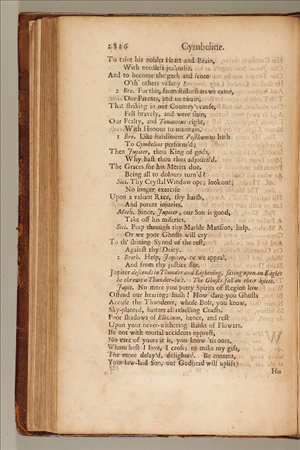 2816 Cymbeline.
To taint his nobler Heart and Brain,
With needless jealousie,
And to become the geek and scorn
O'th' others vilany?
2 Bro. For this, from stiller seats we came,
Our Parents, and us twain,
That striking in our Country's cause,
Fell bravely, and were slain,
Our Fealty, and Tenantius right,
With Honour to maintain.
1 Bro. Like hardiment Posthumus hath
To Cymbeline perform'd;
Then Jupiter, thou King of gods,
Why hast thou thus adjourn'd
The Graces for his Merits due,
Being all to dolours turn'd?
Sici. Thy Crystal Window ope; lookout,
No longer exercise
Upon a valiant Race, thy harsh,
And potent injuries.
Moth. Since, Jupiter, our Son is good,
Take off his miseries.
Sici. Peep through thy Marble Mansion, help,
Or we poor Ghosts will cry
To th' shining Synod of the rest,
Against thy Deity.
2 Broth. Help, Jupiter, or we appeal,
And from thy justice flie.
Jupiter descends in Thunder and Lightning, sitting upon an Eagle:
he throws a Thunder-bolt. The Ghosts fall on their knees.
Jupit. No more you petty Spirits of Region low
Offend our hearing: hush! How dare you Ghosts
Accuse the Thunderer, whose Bolt, you know,
Sky-planted, batters all rebelling Coasts.
Poor shadows of Elizium, hence, and rest
Upon your never-withering Banks of Flowers.
Be not with mortal accidents opprest,
No care of yours it is, you know 'tis ours.
Whom best I love, I cross; to make my gift,
The more delay'd, delighted. Be content,
Your low-laid Son, our Godhead will uplift:
His